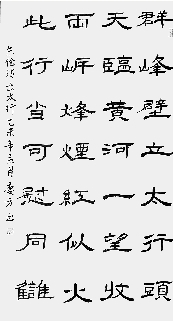 群峰壁立太行頭
天臨黃河一望收
両岸烽煙紅似火
此行当可慰同讎
朱德詩出太行乙未年三月